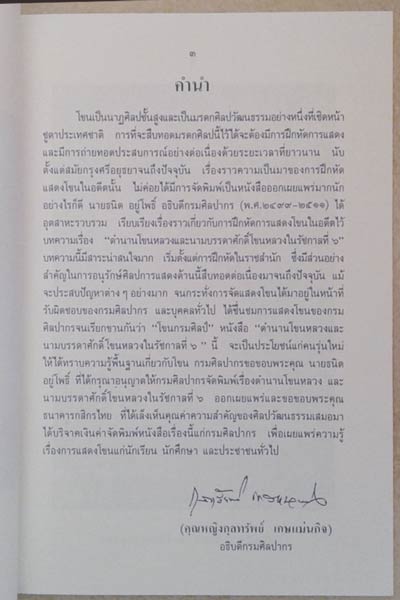 ๓
คำนำ
โขนเป็นนาฏศิลปชั้นสูงและเป็นมรดกศิลปวัฒนธรรมอย่างหนึ่งที่เชิดหน้า
ชูตาประเทศชาติ การที่จะสืบทอดมรดกศิลปนี้ไว้ได้จะต้องมีการฝึกหัดการแสดง
และมีการถ่ายทอดประสบการณ์อย่างต่อเนื่องด้วยระยะเวลาที่ยาวนาน นับ
ตั้งแต่สมัยกรุงศรีอยุธยาจนถึงปัจจุบัน เรื่องราวความเป็นมาของการฝึกหัด
แสดงโขนในอดีตนั้น ไม่ค่อยได้มีการจัดพิมพ์เป็นหนังสือออกเผยแพร่มากนัก
อย่างไรก็ดี นายธนิต อยู่โพธิ์ อธิบดีกรมศิลปากร (พ.ศ.๒๔๙๙-๒๕๑๑) ได้
อุตสาหะรวบรวม เรียบเรียงเรื่องราวเกี่ยวกับการฝึกหัดการแสดงโขนในอดีตไว้
บทความเรื่อง “ตำนานโขนหลวงและนามบรรดาศักดิ์โขนหลวงในรัชกาลที่ ๖”
บทความนี้มีสาระน่าสนใจมาก เริ่มตั้งแต่การฝึกหัดในราชสำนัก ซึ่งมีส่วนอย่าง
สำคัญในการอนุรักษ์ศิลปการแสดงด้านนี้สืบทอดต่อเนื่องมาจนถึงปัจจุบัน แม้
จะประสบปัญหาต่าง ๆ อย่างมาก จนกระทั่งการจัดแสดงโขนได้มาอยู่ในหน้าที่
รับผิดชอบของกรมศิลปากร และบุคคลทั่วไป ได้ชื่นชมการแสดงโขนของกรม
ศิลปากรจนเรียกขานกันว่า “โขนกรมศิลป์” หนังสือ “ตำนานโขนหลวงและ
นามบรรดาศักดิ์โขนหลวงในรัชกาลที่ ๖ ” นี้ จะเป็นประโยชน์แก่คนรุ่นใหม่
ให้ได้ทราบความรู้พื้นฐานเกี่ยวกับโขน กรมศิลปากรขอขอบพระคุณ นายธนิต
อยู่โพธิ์ ที่ได้กรุณาอนุญาตให้กรมศิลปากรจัดพิมพ์เรื่องตำนานโขนหลวง และ
นามบรรดาศักดิ์โขนหลวงในรัชกาลที่ ๖ ออกเผยแพร่และขอขอบพระคุณ
ธนาคารกสิกรไทย ที่ได้เล็งเห็นคุณค่าความสำคัญของศิลปวัฒนธรรมเสมอมา
ได้บริจาคเงินค่าจัดพิมพ์หนังสือเรื่องนี้แก่กรมศิลปากร เพื่อเผยแพร่ความรู้
เรื่องการแสดงโขนแก่นักเรียน นักศึกษา และประชาชนทั่วไป
(คุณหญิงกุลทรัพย์ เกษแม่นกิจ)
อธิบดีกรมศิลปากร